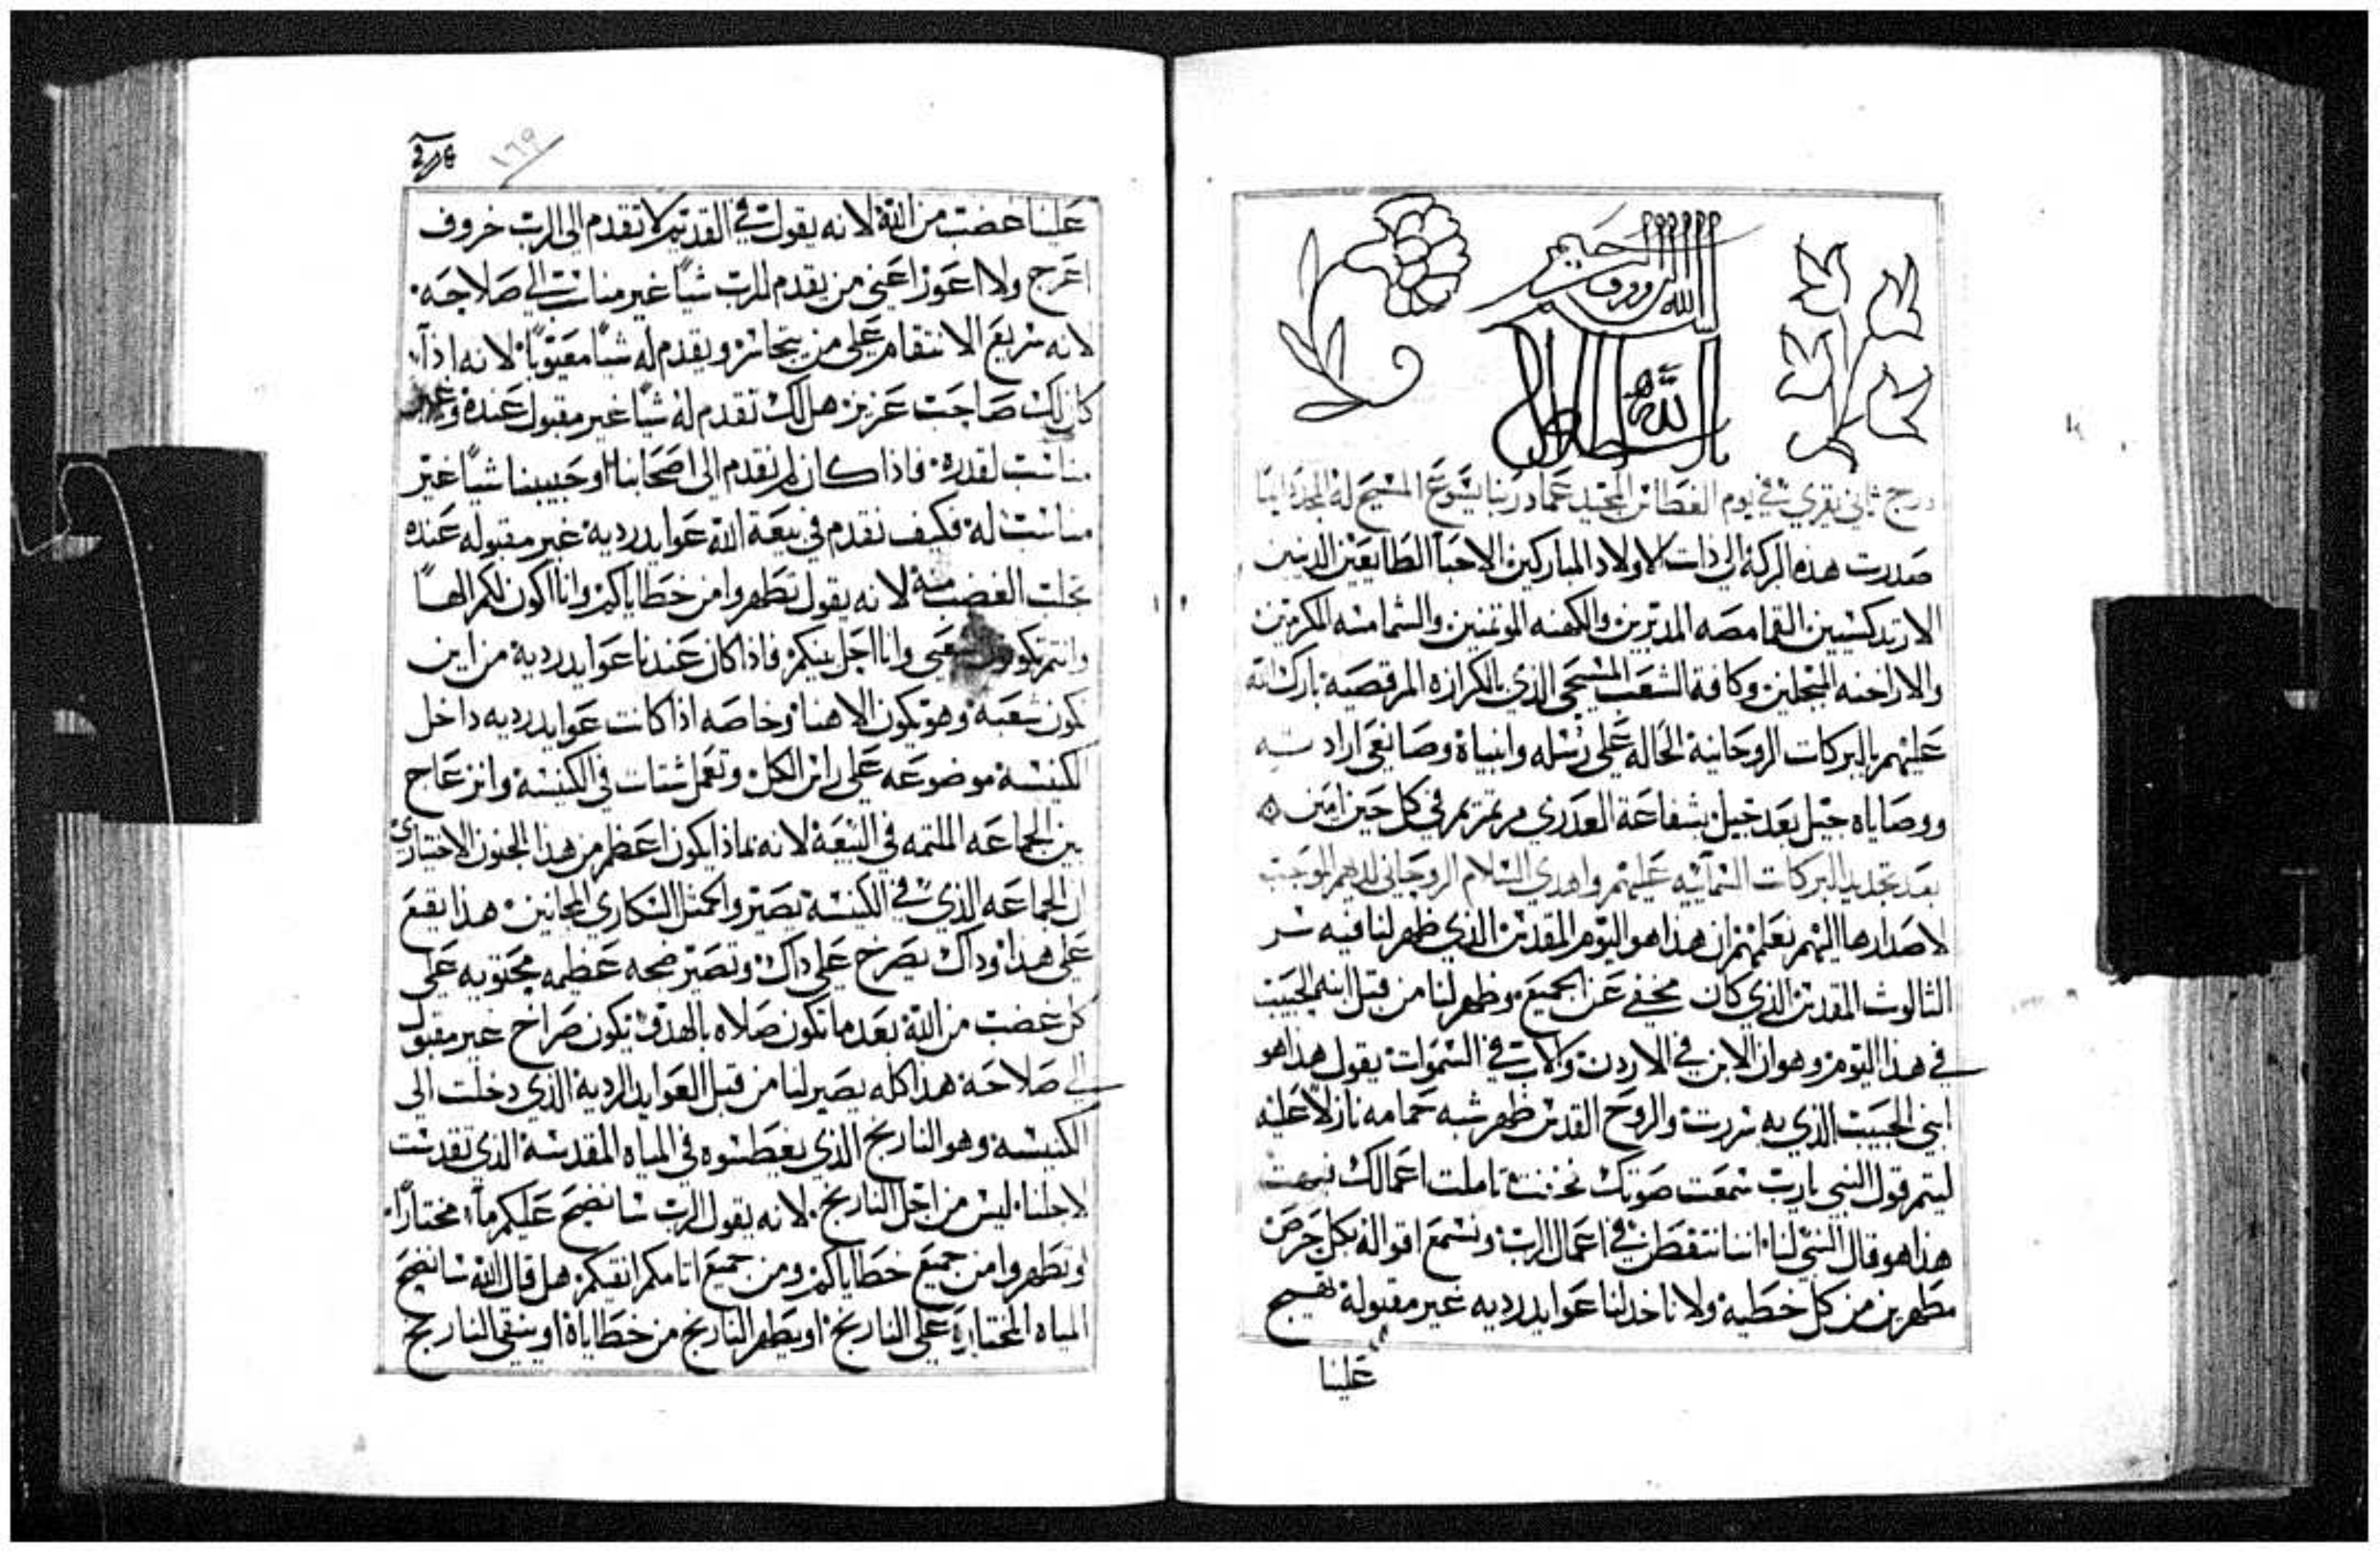 بسم الله الرووف الرحيم
درج ثاني يقري في يوم الغطاس المجيد عماد ربنا يسوع المسيح له المجد دايما
صدرت هذه البركة الى ذات الاولاد المباركين الاحبا الطايعين الدينين
الارتدكسيين القمامصه المدبرين والكهنه الموتمنين والشمامسه المكرمين
والاراخنه المبجلين وكافة الشعب المسيحي الذي بالكرازه المرقصيه بارك الله
عليهم بالبركات الروحانية الحاله على رسله وانبياه وصانعي ارادته
ووصاياه جيل بعد جيل بشفاعة العدري مرتمريم في كل حين امين
بعد تجديد البركات السمآييه عليهم واهدي السلام الروحاني لديهم الموجب
لاصدارها اليهم نعلمهم ان هذا هو اليوم المقدس الذي ظهر لنا فيه سر
الثالوث المقدس الذي كان مخفي عن الجميع وظهر لنا من قبل ابنه الحبيب
في هذا اليوم وهو ان الابن في الاردن والاب في السموات يقول هذا هو
ابني الحبيب الذي به سررت والروح القدس ظهر شبه حمامه نازلاً عليه
ليتم قول النبي يارب سمعت صوتك فخفت تاملت اعمالك فبهت
هذا هو قال النبي لنا اننا نتفطن في اعمال الرب ونسمع اقواله بكل حرص
مطهرين من كل خطيه ولا ناخد لنا عوايد رديه غير مقبوله تهيج
علينا
١٦٩
علينا غضب من الله لانه يقول في القديم لا تقدم الى الرب خروف
اعرج ولا اعوز اعني من يقدم للرب شياً غير مناسب الي صلاحه
لانه سريع الانتقام على من يتجاسر ويقدم له شياً معيوباً لانه اذا
كان لك صاحب عزيز هل لك تقدم له شياً غير مقبول عنده وغير
مناسب لقدره فاذا كان لم نقدم الى اصحابنا او حبيبنا شياً غير
مناسب له فكيف نقدم في بيعة الله عوايد رديه غير مقبوله عنده
تجلب الغضب منه لانه يقول تطهروا من خطاياكم وانا اكون لكم الهاً
وانتم تكونون شعبي وانا احل بينكم فاذا كان عندنا عوايد رديه من اين
نكون شعبه وهو يكون الاهنا وخاصه اذا كانت عوايد رديه داخل
الكنيسه موضوعه على راس الكل وتعمل شتات في الكنيسه وانزعاج
بين الجماعه الملتمه في البيعة لانه ماذا يكون اعظم من هذا الجنون الاختياري
ان الجماعه الذي في الكنيسه تصيروا كمثل السكاري المجانين هذا يقع
على هذا وداك يصرخ على داك وتصير ضجه عظيمه محتويه على
كل غضب من الله بعد ما تكون صلاه بالهدو تكون صراخ غير مقبول
الي صلاحه هذا كله يصير لنا من قبل العوايد الرديه الذي دخلت الى
الكنيسه وهو النارنج الذي يغطسوه في المياه المقدسه الذي تقدست
لاجلنا ليس من اجل النارنج لانه يقول الرب سانضح عليكم مآء مختاراً
وتطهروا من جميع خطاياكم ومن جميع اتامكم انقيكم هل قال الله سانضح
المياه المختاره على النارنج او يطهر النارنج من خطاياه او ينقي النارنج